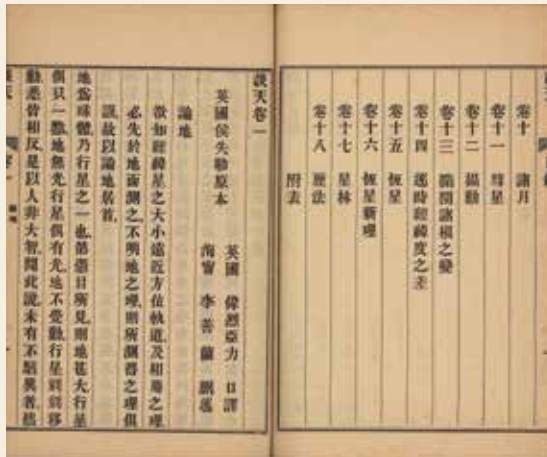 卷十 諸月
卷十一 彗星
卷十二 攝動
卷十三 橢圓諸根之變
卷十四 逐時經緯度之差
卷十五 恆星
卷十六 恆星新理
卷十七 星林
卷十八 歷法
附表
談天卷一
英國侯失勒原本
英國 偉烈亞力 口譯
海寧 李善蘭 刪述
論地
欲知經緯星之大小遠近方位軌道及相屬之理
必先於地面測之不明地之理則所測得之理俱
誤故以論地居首
地為球體乃行星之一也第憑目所見則地甚大行星
俱只一點地無光行星俱有光地不覺動行星則刻移
動悉皆相反是以人非大智聞此說未有不駭異者然